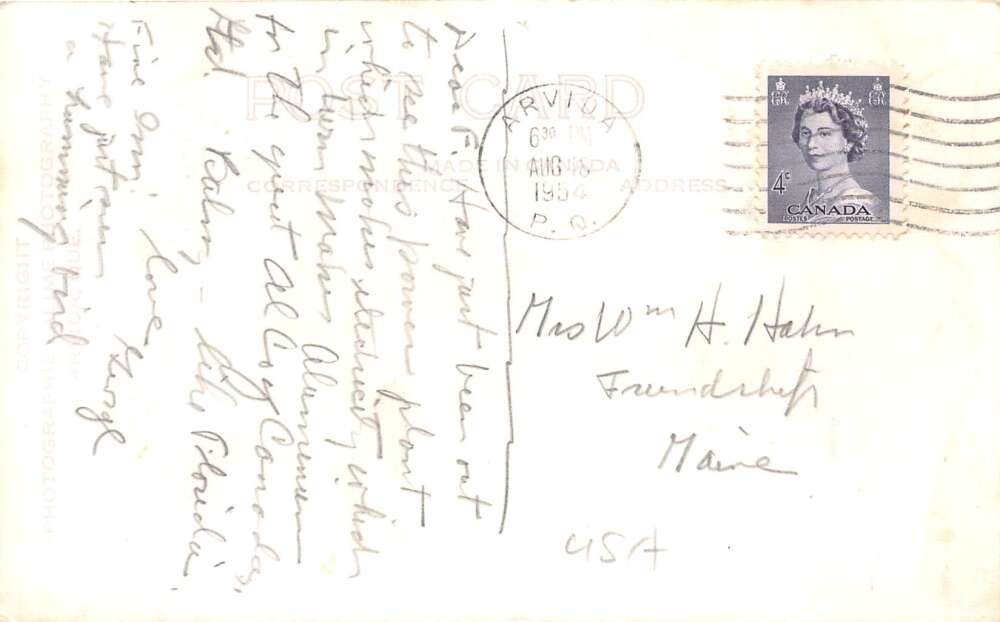 POST CARD
MADE IN CANADA
CORRESPONDENCE
ADDRESS
Dear F. Have just been out
to see this power plant
which makes electricity which
in turn makes Aluminum
for the great Al Co of Canada,
Ltd. Balmy - like Florida.
Fine Inn.
Have just seen
a humming bird
love
George
ARVIDA
6 30 PM
AUG 18
1954
P. Q.
4c
CANADA
POSTES POSTAGE
Mrs Wm H. Hahn
Friendship
Maine
USA
COPYRIGHT